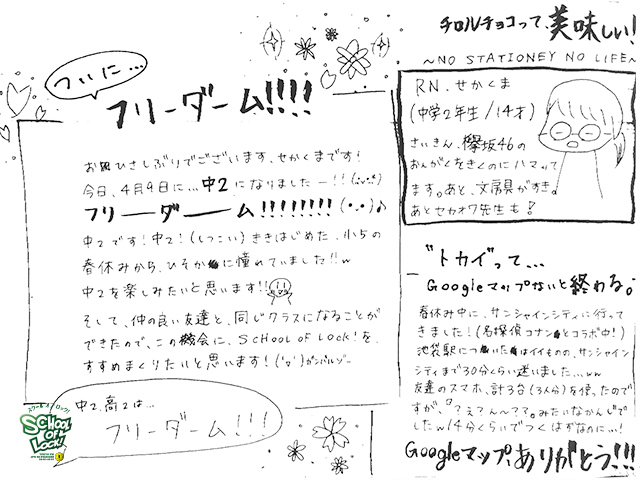 ついに…
フリーダーム!!!!
お久ひさしぶりでございます、せかくまです!
今日、4月9日に…中2になりましたー!!
フリーダーム!!!!!!!!!
中2です!中2!(しつこい)ききはじめた、小5の
春休みから、ひそかに憧れていました!!w
中2を楽しみたいと思います!!
そして、仲の良い友達と、同じクラスになることが
できたので、この機会に、SCHOOL OF LOCK!を、
すすめまくりたいと思います!('▽')ガンバルゾー
中2、高2は…
フリーダーム!!!
スクールオブロック!
SCHOOL OF LOCK!
チロルチョコって、美味しい!
〜NO STATIONEY NO LIFE〜
RN.せかくま
(中学2年生/14才)
さいきん、欅坂46の
おんがくをきくのにハマッて
ます。あと、文房具がすき。
あとセカオワ先生も!
"トカイ"って…
Googleマップないと終わる。
春休み中に、サンシャインシティに行って
きました!(名探偵コナンとコラボ中!)
池袋駅についたはイイものの、サンシャイン
シティまで30分くらい迷いました…ww
友達のスマホ、計3台(3人分)を使ったので
すが、「てぇてん〜??。みたいなかんじで
したw14分くらいでつくはずなのに…!
Googleマップ、ありがとう!!!